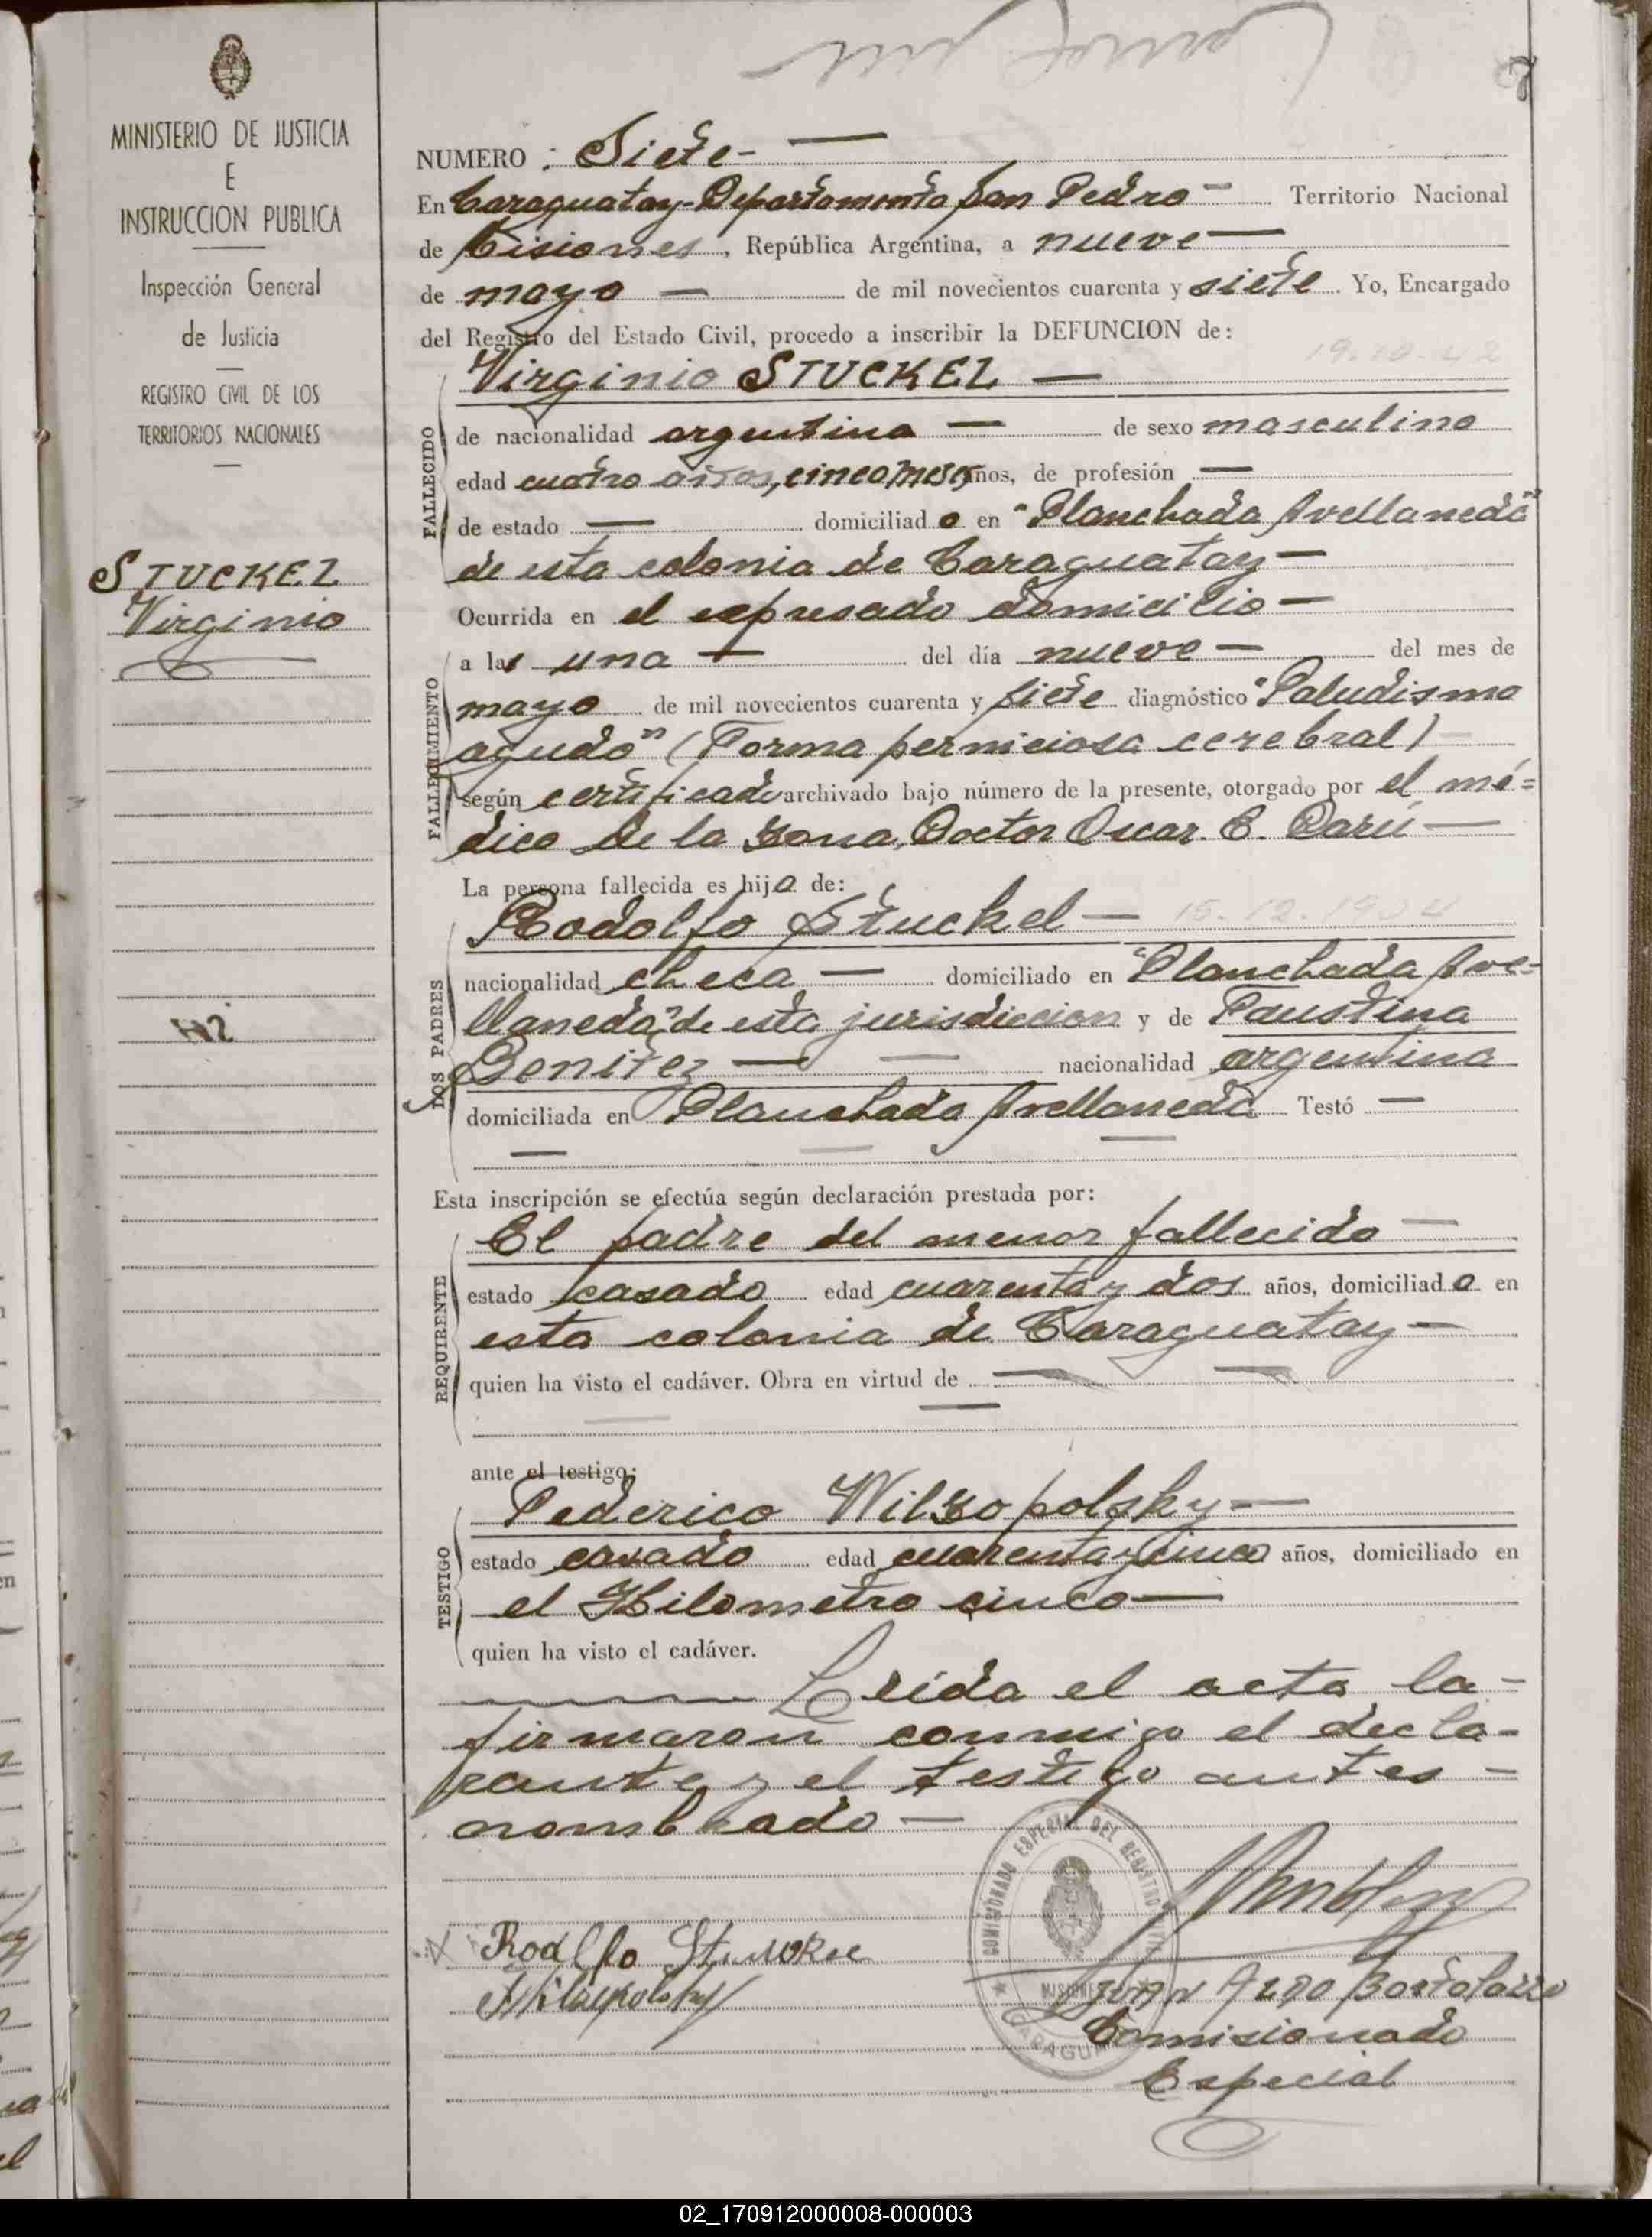 MINISTERIO DE JUSTICIA
E
INSTRUCCION PUBLICA
Inspección General
de Justicia
REGISTRO CIVIL DE LOS
TERRITORIOS NACIONALES
STUCKEL
Virginio
NUMERO : Siete-
En Caraguatay-Departamento San Pedro Territorio Nacional
de Misiones, República Argentina, a nueve
de mayo de mil novecientos cuarenta y siete. Yo, Encargado
del Registro del Estado Civil, procedo a inscribir la DEFUNCION de:
19.10.42
Virginio STUCKEL
FALLECIDO
de nacionalidad argentina de sexo masculino
edad cuatro años, cinco meses años, de profesión
de estado domiciliado en "Planchada Avellaneda"
de esta colonia de Caraguatay
Ocurrida en el expresado domicilio
FALLECIMIENTO
a las una del día nueve del mes de
mayo de mil novecientos cuarenta y siete diagnóstico "Paludismo
agudo" (Forma perniciosa cerebral)
según certificado archivado bajo número de la presente, otorgado por el mé=
dico de la zona, Doctor Oscar C. Darú
La persona fallecida es hijo de:
Rodolfo Stuckel 15.12.1904
LOS PADRES
nacionalidad checa domiciliado en "Planchada Ave-
llaneda" de esta jurisdiccion y de Faustina
Benitez nacionalidad argentina
domiciliada en Planchada Avellaneda Testó
Esta inscripción se efectúa según declaración prestada por:
El padre del menor fallecido
REQUIRENTE
estado casado edad cuarenta y dos años, domiciliado en
esta colonia de Caraguatay
quien ha visto el cadáver. Obra en virtud de
ante el testigo:
Federico Wilzopolsky
TESTIGO
estado casado edad cuarenta y cinco años, domiciliado en
el Kilometro cinco
quien ha visto el cadáver.
Leída el acta la-
firmaron conmigo el decla-
rante y el testigo antes-
nombrado
COMISIONADO ESPECIAL DEL REGISTRO CIVIL
MISIONES
CARAGUATAY
Rodolfo Stuckel
Juan Bortolazzo
Comisionado
Especial
02_170912000008-000003